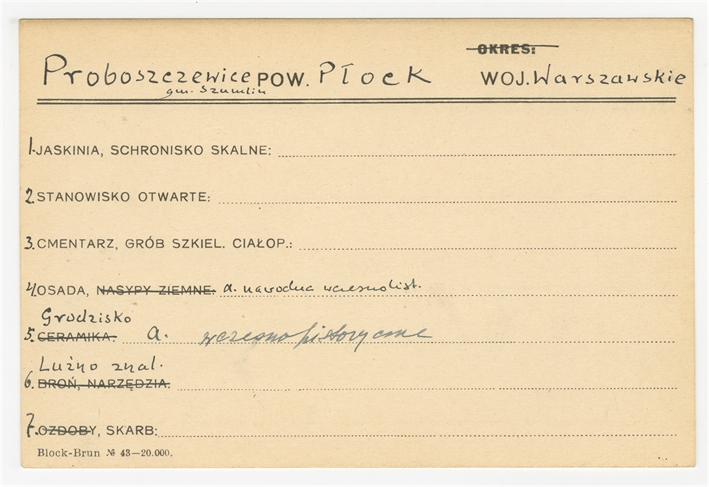 OKRES:
Proboszczewice POW. Płock WOJ. Warszawskie
gm. Szumlin
1. JASKINIA, SCHRONISKO SKALNE:
2. STANOWISKO OTWARTE:
3. CMENTARZ, GRÓB SZKIEL. CIAŁOP.:
4. OSADA, NASYPY ZIEMNE: a. wczesnohist.
Grodzisko
5. CERAMIKA. a. wczesnohistoryczne
Luźno znal.
6. BROŃ, NARZĘDZIA.
7. OZDOBY, SKARB:
Block-Brun № 43—20.000.